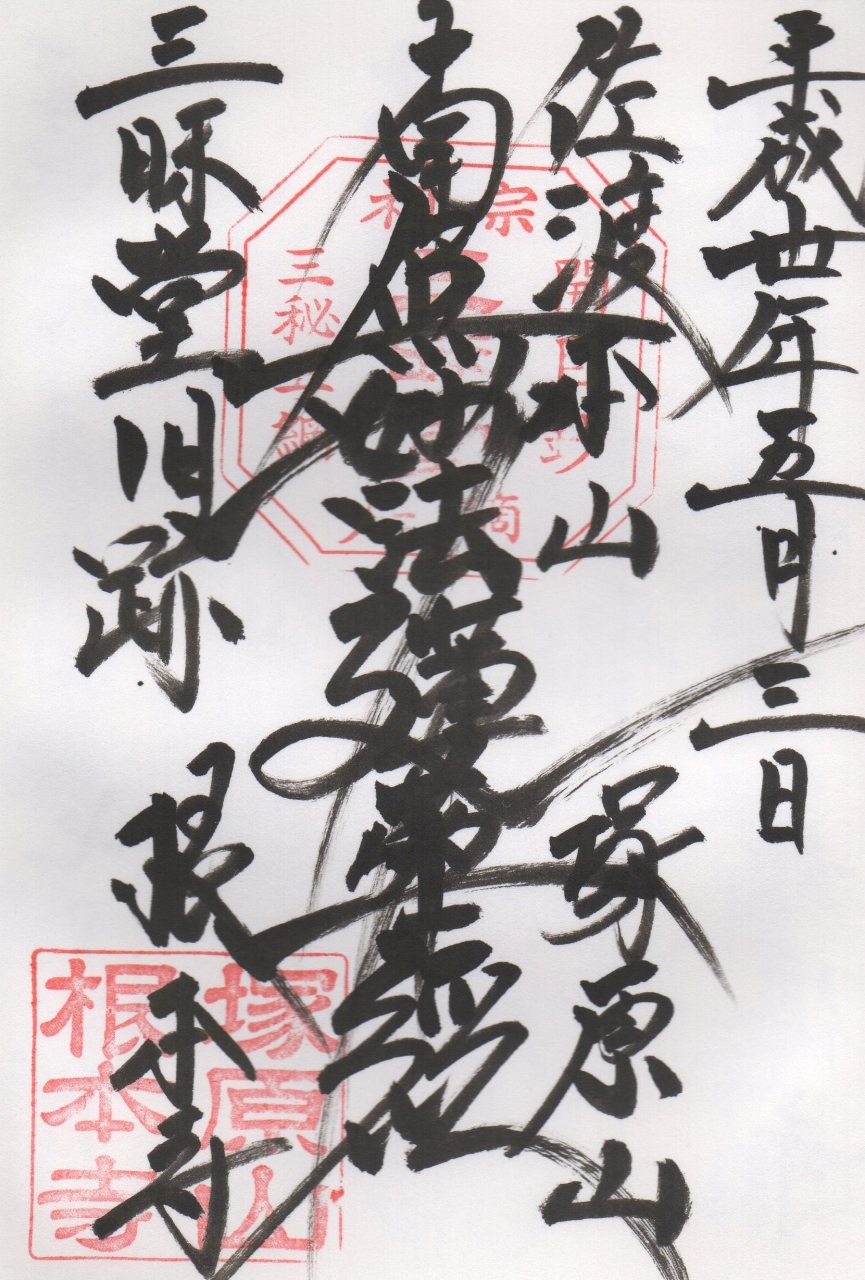 平成丗年五月三日
佐渡本山 塚原山
南無妙法蓮華經
三昧堂旧跡 根本寺
宗
開目抄
三秘五綱
塚原山
根本寺